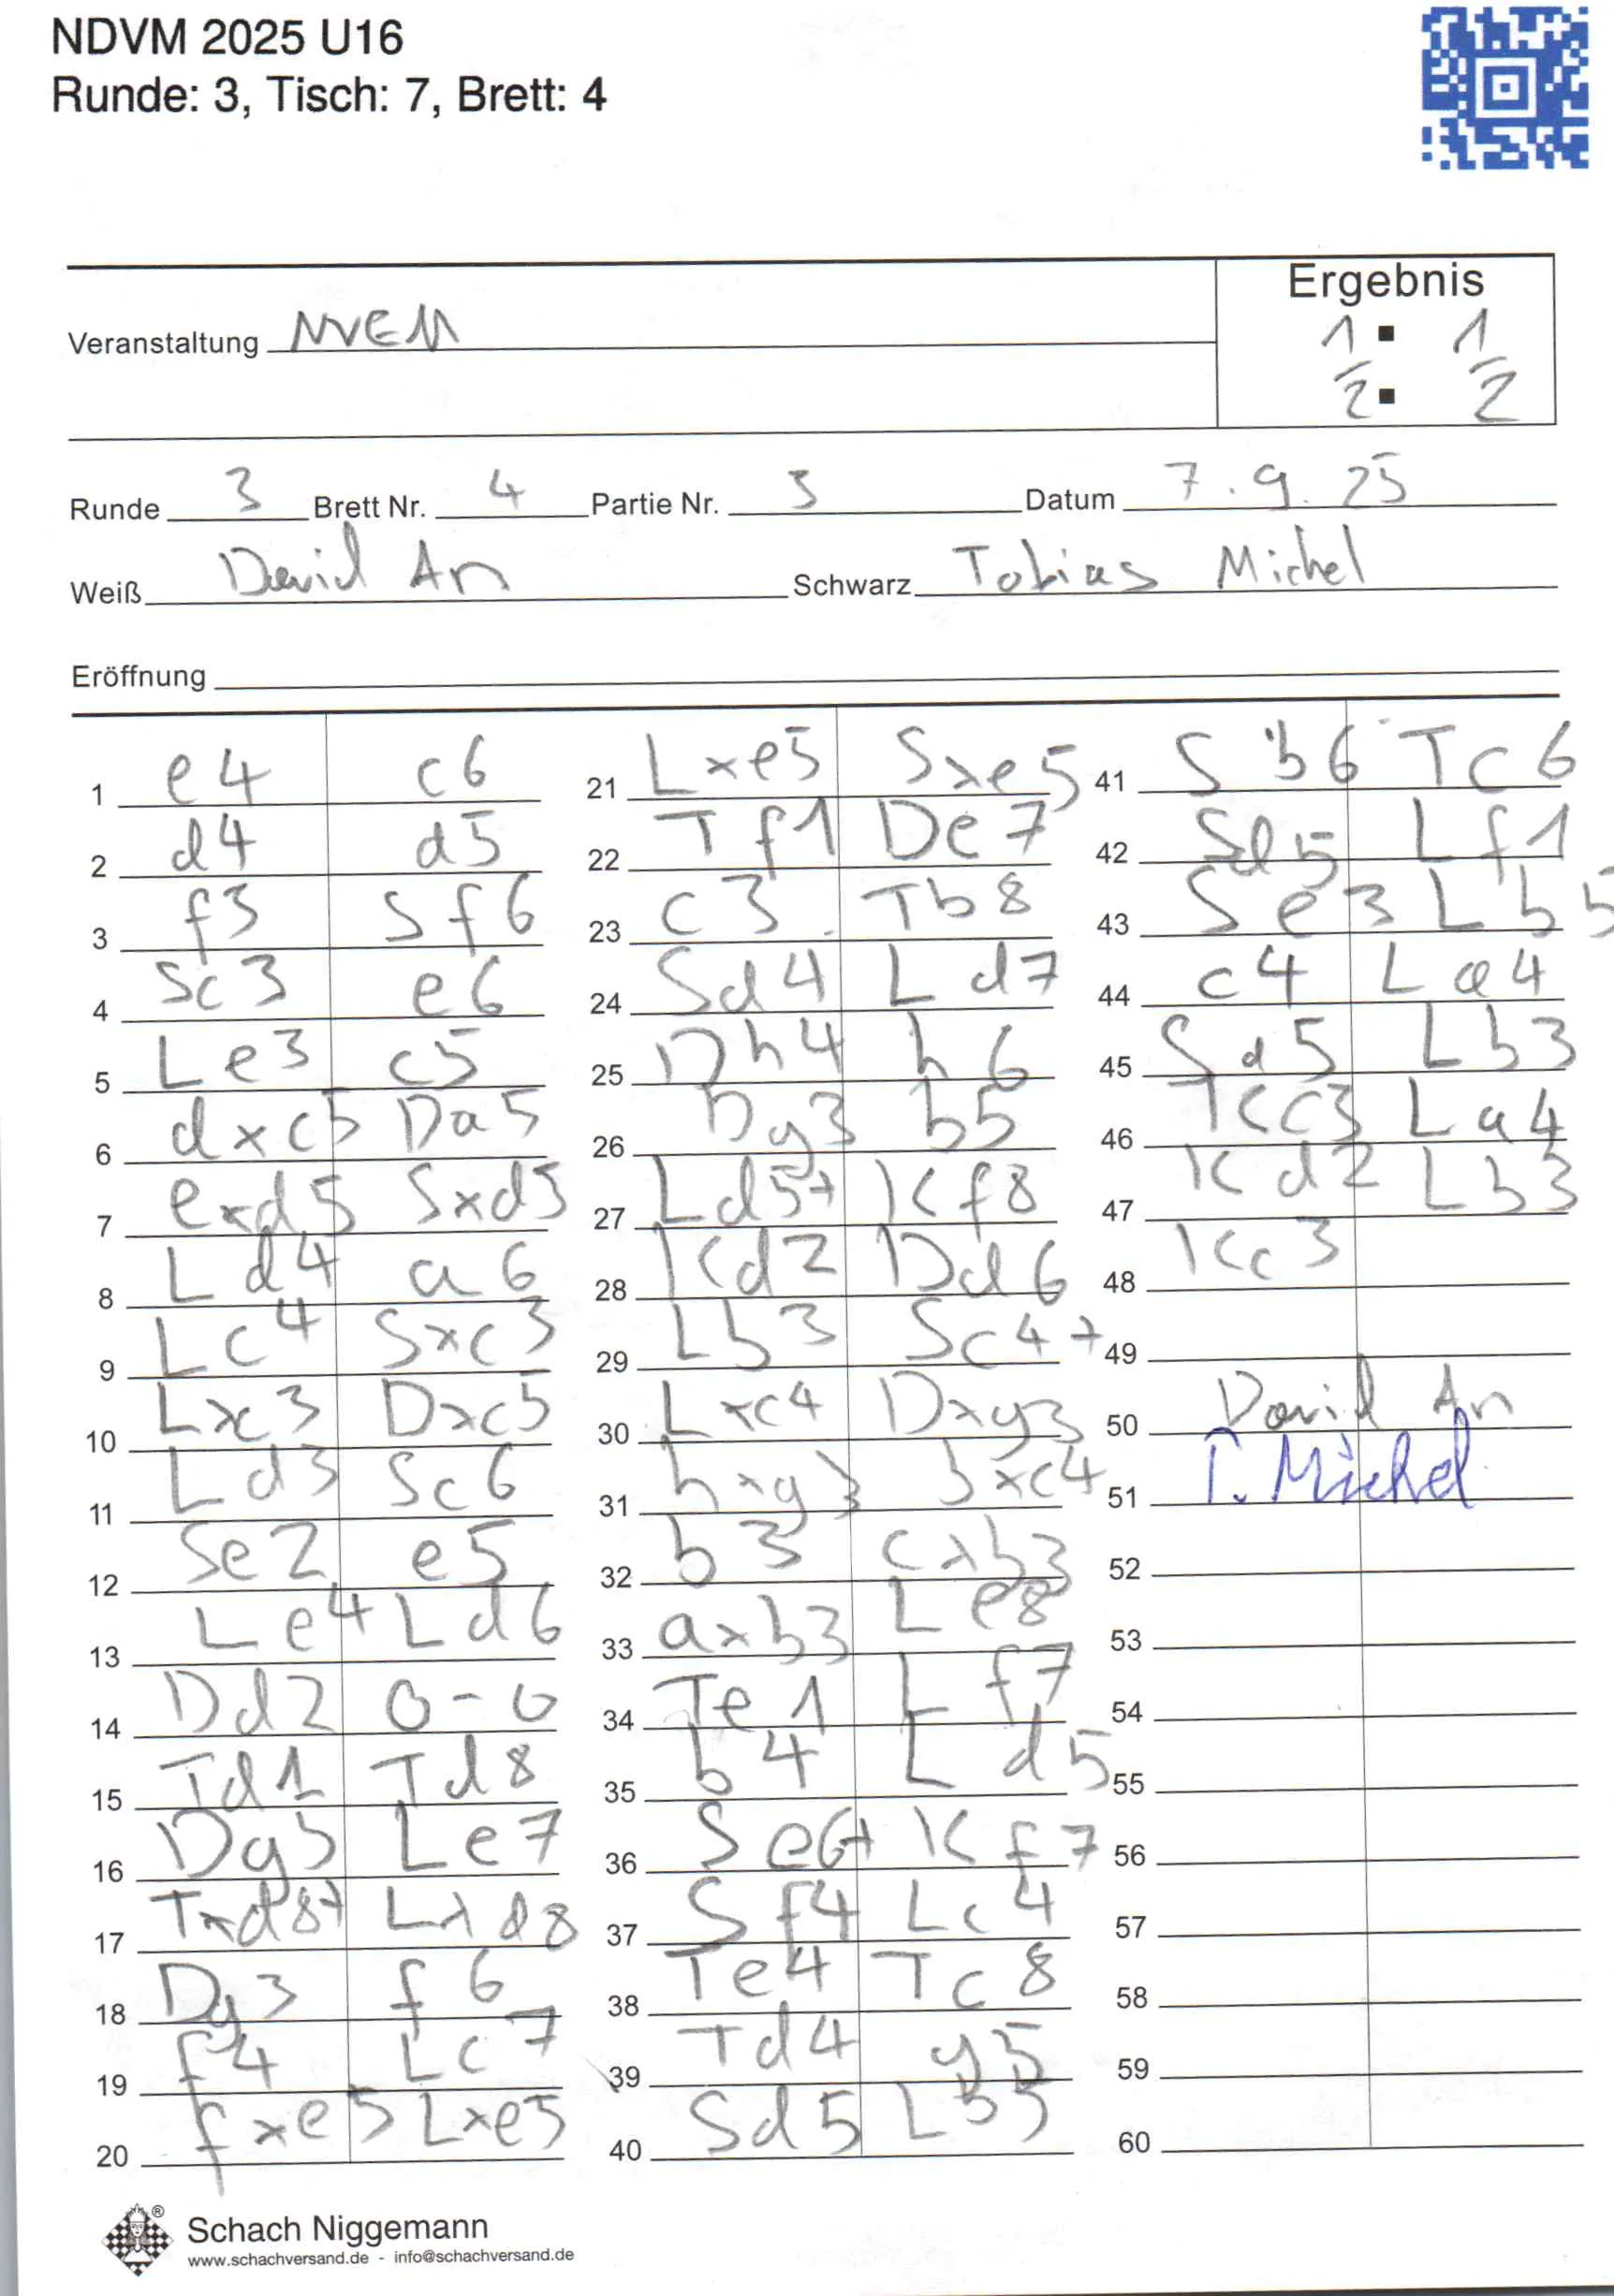 NDVM 2025 U16
Runde: 3, Tisch: 7, Brett: 4
Ergebnis
Veranstaltung NVEM
1/2 : 1/2
Runde 3 Brett Nr. 4 Partie Nr. 3 Datum 7.9.25
Weiß David An Schwarz Tobias Michel
Eröffnung
1 e4 c6
2 d4 d5
3 f3 Sf6
4 Sc3 e6
5 Le3 c5
6 dxc5 Da5
7 exd5 Sxd5
8 Ld4 a6
9 Lc4 Sxc3
10 Lxc3 Dxc5
11 Ld3 Sc6
12 Se2 e5
13 Le4 Ld6
14 Dd2 0-0
15 Td1 Td8
16 Dg5 Le7
17 Txd8+ Lxd8
18 Dg3 f6
19 f4 Lc7
20 fxe5 Lxe5
21 Lxe5 Sxe5
22 Tf1 De7
23 c3 Tb8
24 Sd4 Ld7
25 Dh4 h6
26 Dg3 b5
27 Ld5+ Kf8
28 Kd2 Dd6
29 Lb3 Sc4+
30 Lxc4 Dxg3
31 hxg3 bxc4
32 b3 cxb3
33 axb3 Le8
34 Te1 Lf7
35 b4 Ld5
36 Se6+ Kf7
37 Sf4 Lc4
38 Te4 Tc8
39 Td4 g5
40 Sd5 Lb5
41 Sb6 Tc6
42 Sd5 Lf1
43 Se3 Lb5
44 c4 La4
45 Sd5 Lb3
46 Kc3 La4
47 Kd2 Lb3
48 Kc3
49
50 David An
51 T. Michel
52
53
54
55
56
57
58
59
60
Schach Niggemann
www.schachversand.de - info@schachversand.de